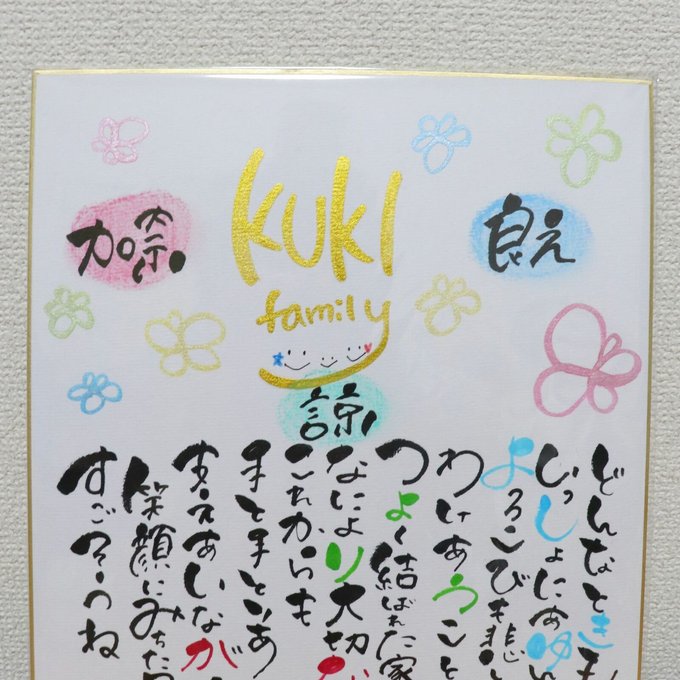 KUKI
family
加奈
良之
諒
どんなときも
いっしょにあゆ
よろこびも悲し
わけあうこと
つよく結ばれた家
なにより大切な
これからも
手と手とりあ
支えあいなが
笑顔にみちた
すごそうね